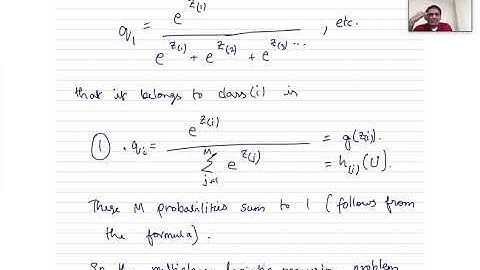 q₁ = e^{z(1)} / (e^{z(1)} + e^{z(2)} + e^{z(3)} ...) , etc.
that it belongs to class(i) is
① . qᵢ = e^{z(i)} / ∑_{j=1}^{M} e^{z(j)} = g(z(i)).
= h_{(i)}(U).
These M probabilities sum to 1 (follows from
the formula).
So the logistic regression problem